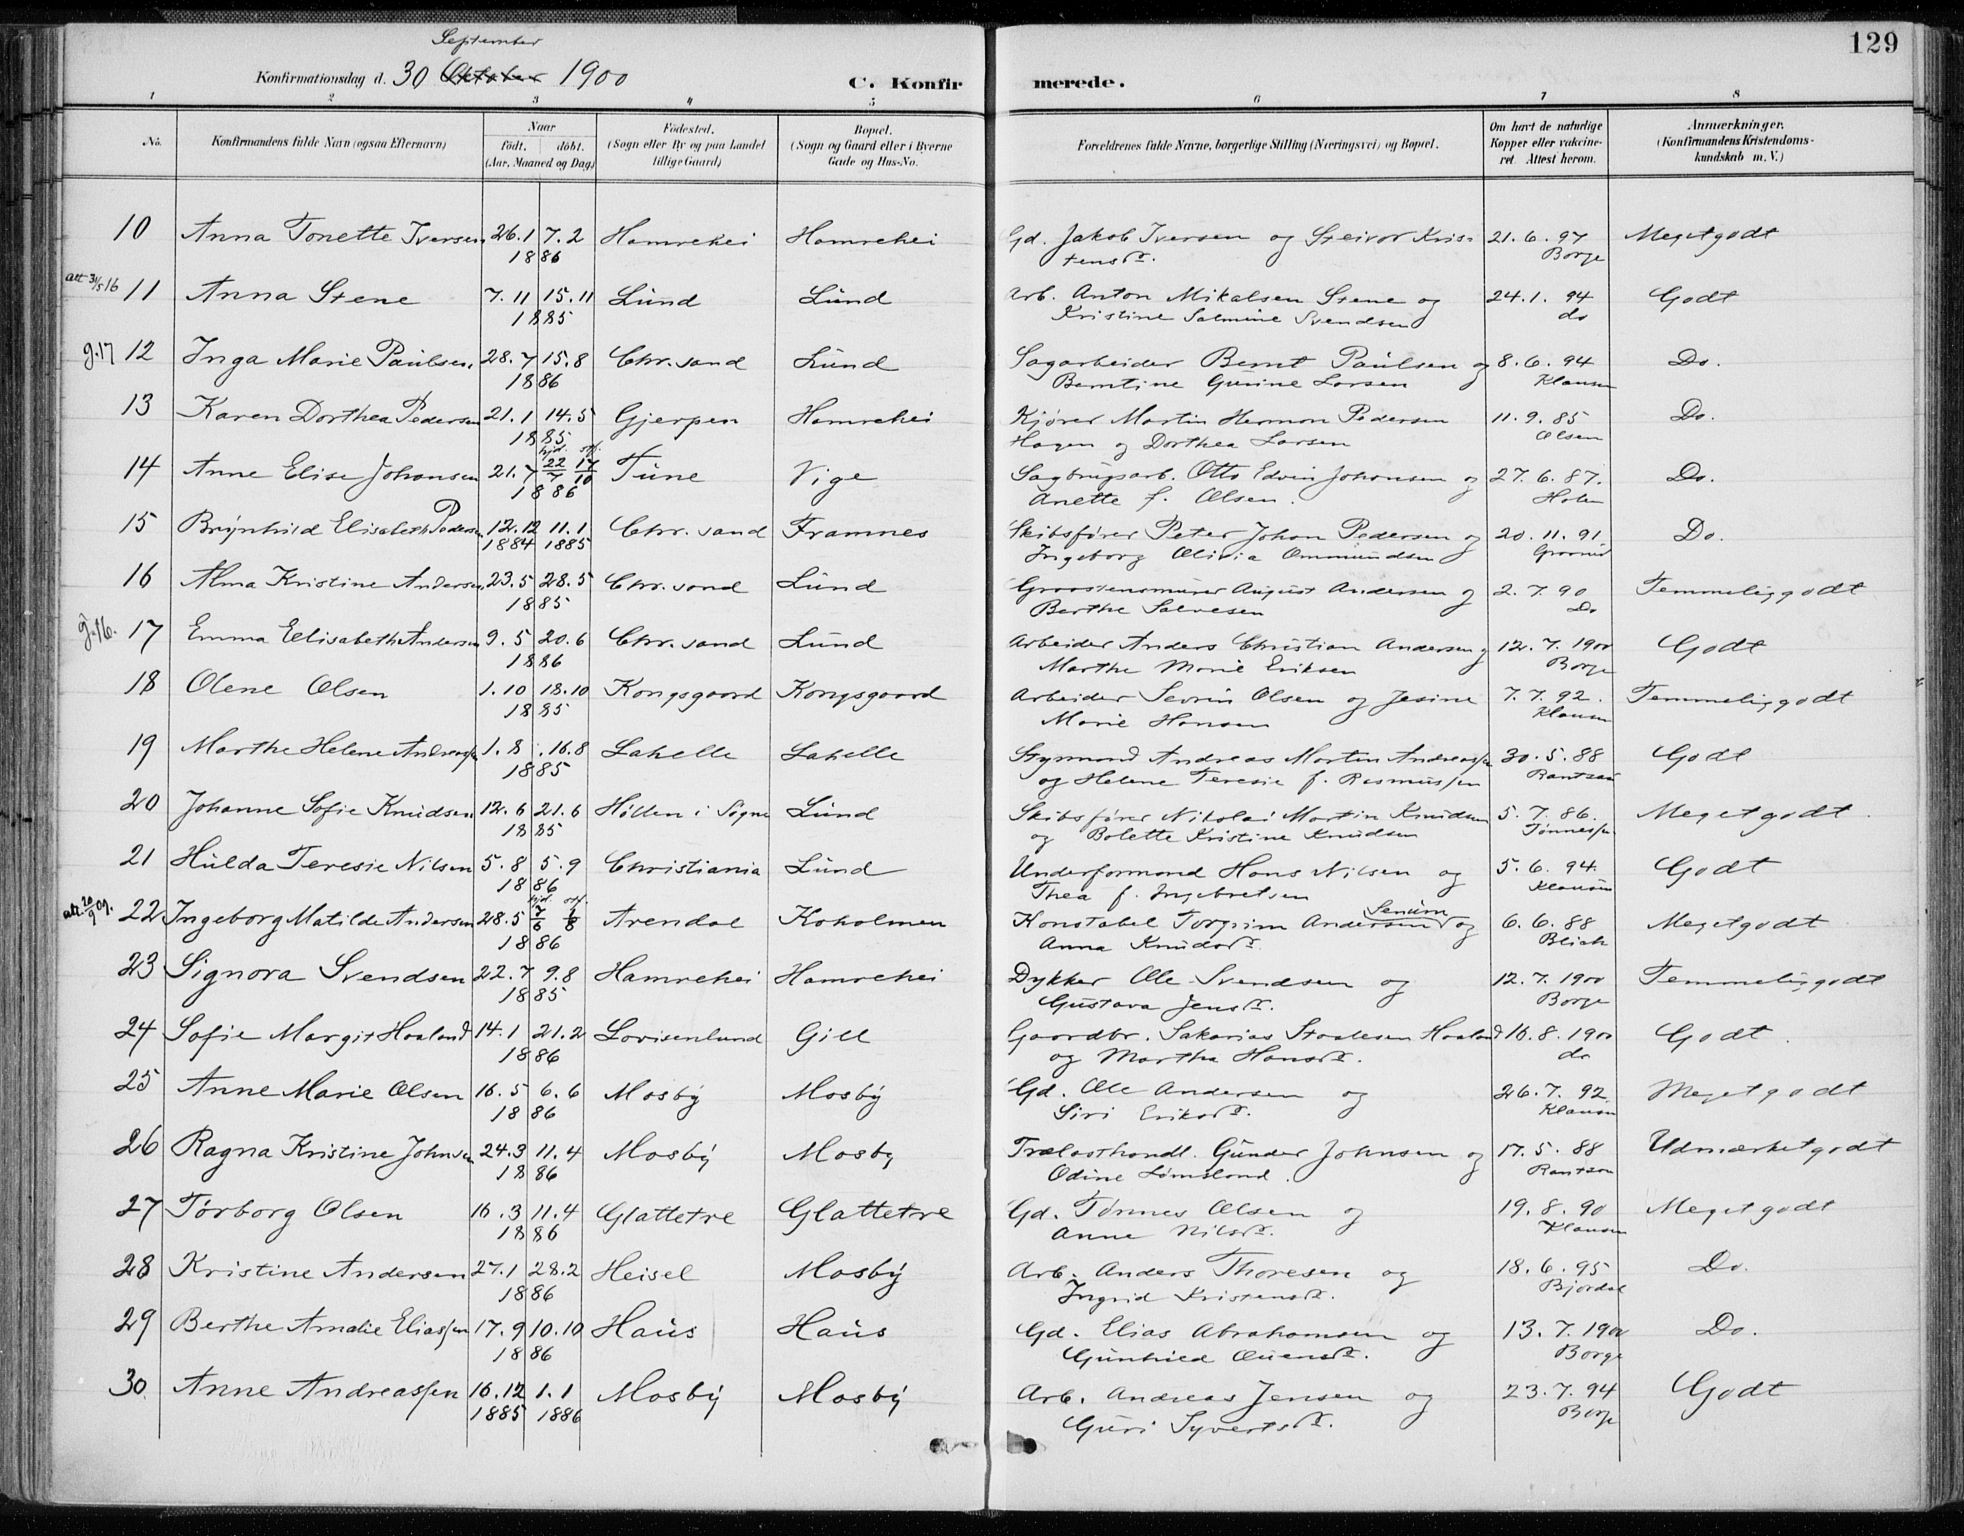 129
September
Konfirmationsdag d. 30 October 1900 C. Konfirmerede.
1 2 3 4 5 6 7 8
No. Konfirmandens fulde Navn (ogsaa Efternavn) Naar født. døbt. (Aar, Maaned og Dag) Fødested. (Sogn eller By og paa Landet tillige Gaard) Bopæl. (Sogn og Gaard eller i Byerne Gade og Hus-No. Forældrenes fulde Navne, borgerlige Stilling (Næringsvei) og Bopæl. Om havt de naturlige Kopper eller vakcineret. Attest herom. Anmærkninger. (Konfirmandens Kristendomskundskab m. V.)
10 Anna Tonette Iversen 26.1 7.2 Hamrehei Hamrehei Gd. Jakob Iversen og Steivor Kris- 21.6.97 Megetgodt
1886 tensd. Borge
att 31/5 16 11 Anna Stene 7.11 15.11 Lund Lund Arb. Anton Mikalsen Stene og 24.1.94 Godt
1885 Kristine Salmine Svendsen do
g.17 12 Inga Marie Paulsen 28.7 15.8 Chr.sand Lund Sagarbeider Bernt Paulsen og 8.6.94 Do.
1886 Berntine Gurine Larsen Klausen
13 Karen Dorthea Pedersen 21.1 14.5 Gjerpen Hamrehei Kjører Martin Herman Pedersen 11.9.85 Do.
1885 Hagen og Dorthea Larsen Olsen
14 Anne Elise Johansen 21.7 hjd. 22/7 off. 17/10 Tune Vige Sagbrugsarb. Otto Edvin Johansen og 27.6.87. Do.
1886 Anette f. Olsen. Holm
15 Brynhild Elisabeth Pedersen 12.12 11.1 Chr.sand Framnes Skibsfører Peter Johan Pedersen og 20.11.91 Do.
1884 1885 Ingeborg Olivia Ommundsen
16 Alma Kristine Andersen 23.5 28.5 Chr.sand Lund Graastensmurer August Andersen og 2.7.90 Temmeliggodt
1885 Berthe Salvesen Do
g.16. 17 Emma Elisabeth Andersen 9.5 20.6 Chr.sand Lund Arbeider Anders Christian Andersen og 12.7.1900 Godt
1886 Marthe Marie Eriksen Borge
18 Olene Olsen 1.10 18.10 Kongsgaard Kongsgaard Arbeider Sevrin Olsen og Jesine 7.7.92. Temmeliggodt
1885 Marie Hansen Klausen
19 Marthe Helene Andreassen 1.8 16.8 Lahelle Lahelle Styrmand Andreas Martin Andreassen 30.5.88 Godt
1885 og Helene Teresie f. Rasmussen Rantzau
20 Johanne Sofie Knudsen 12.6 21.6 Hðllen i Søgne Lund Skibsfører Nikolai Martin Knudsen 5.7.86. Megetgodt.
1885 og Bolette Kristine Knudsen Tønnessen
21 Hulda Teresie Nilsen 5.8 5.9 Christiania Lund Underformand Hans Nilsen og 5.6.94. Godt
1886 Thea f. Ingebretsen Klausen
att. 20/9 09. 22 Ingeborg Matilde Andersen 28.5 hjd. 7/6 off. 1/8 Arendal Kokolmen Konstabel Torgrim Andersen Senum og 6.6.88 Megetgodt
1886 Anna Knudsd. Blich
23 Signora Svendsen 22.7 9.8 Hamrehei Hamrehei Dykker Ole Svendsen og 12.7.1900 Temmeliggodt
1885 Gustava Jensd. Borge
24 Sofie Margit Haaland 14.1 21.2 Lovisenlund Gill Gaardbr. Sakarias Staalesen Haaland 16.8.1900 Godt.
1886 og Martha Hansd. do
25 Anne Marie Olsen 16.5 6.6 Mosby Mosby Gd. Ole Andersen og 26.7.92. Megetgodt
1886 Siri Eriksd. Klausen
26 Ragna Kristine Johnsen 24.3 11.4 Mosby Mosby Trælasthandl. Gunder Johnsen og 17.5.88 Udmærketgodt
1886 Odine Lømsland. Rantzau
27 Tørborg Olsen 16.3 11.4 Glattetre Glattetre Gd. Tønnes Olsen og 19.8.90 Megetgodt
1886 Anne Nilsd. Klausen
28 Kristine Andersen 27.1 28.2 Heisel Mosby Arb. Anders Thoresen og 18.6.95 Do.
1886 Ingrid Kristensd. Bjordal
29 Berthe Amalie Eliassen 17.9 10.10 Haus Haus Gd. Elias Abrahamsen og 13.7.1900 Do.
1886 Gunhild Ouensd. Borge
30. Anne Andreassen 16.12 1.1 Mosby Mosby Arb. Andreas Jensen og 23.7.94 Godt
1885 1886 Guri Syvertsd. Borge